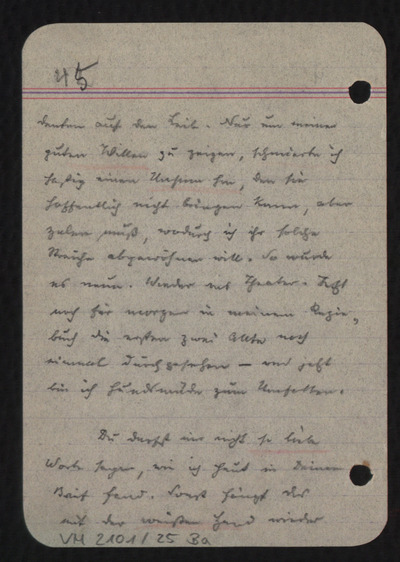 45
denken auf den Leib. Nur um meinen
guten Willen zu zeigen, schmierte ich
hastig einen Unsinn hin, den sie
hoffentlich nicht bringen kann, aber
zalen muß, wodurch ich ihr solche
Streiche abgewöhnen will. So wurde
es neun. Wieder ins Theater. Jetzt
noch für morgen in meinem Regie-
buch die ersten zwei Akte noch
einmal durchgesehen – und jetzt
bin ich hundemüde zum Umfallen.
Du darfst mir nicht so liebe
Worte sagen, wie ich heut in Deinem
Brief fand. Sonst fängt das
mit der weißen Hand wieder
VM 2101/25 Ba